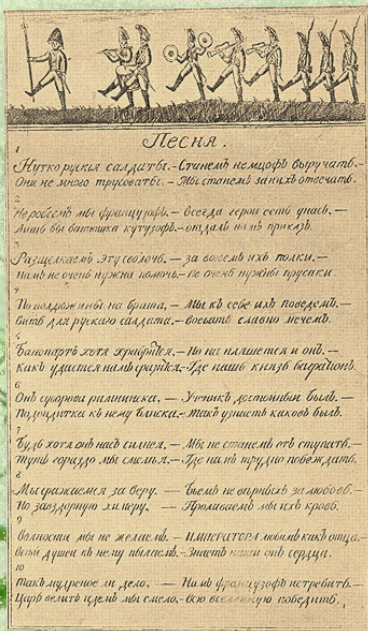 Песня.
1
Нутко рускія салдаты. - Станемъ немцофъ выручать.
Они не много трусоваты. - Мы станемъ за нихъ отвечать.
2
Не робеемъ мы французофъ - всегда герои есть у насъ. -
Лишь бы батюшка кутузофъ. - отдалъ намъ приказъ.
3
Разщелкаемъ эту сволочь. - за во всемъ ихъ полки. -
Намъ не очень нужна помочь. - не очень нужны прусаки.
4
По полдюжины на брата, - Мы къ себе ихъ поведемъ. -
для рускаго салдата. - славно мечемъ.
5
Банапарте хотя храбрится. - и онъ. -
Какъ удастся намъ - Где нашъ князь багратіонъ.
6
Онъ суворова римниска. - Ученикъ достойный былъ. -
къ нему блиска. - Такъ узнаетъ каковъ былъ.
7
Будь хотя онъ насъ силнея. - Мы не станемъ отъ ступать. -
гораздо мы смелья. - Где намъ трудно побеждать.
8
Мы сражаемся за веру. — Бьемъ не верныхъ за любовь. -
Но завздорную химеру. — Проливаемъ мы ихъ кровь.
9
Волности мы не желаемъ. - императора любимъ какъ отца.
душей къ нему пылаемъ. - Знаетъ онъ сердца.
10
Такъ мудреное ли дело. - Намъ французофъ истребить. -
Царь велитъ идемъ мы смело. - всю вселенную победить.